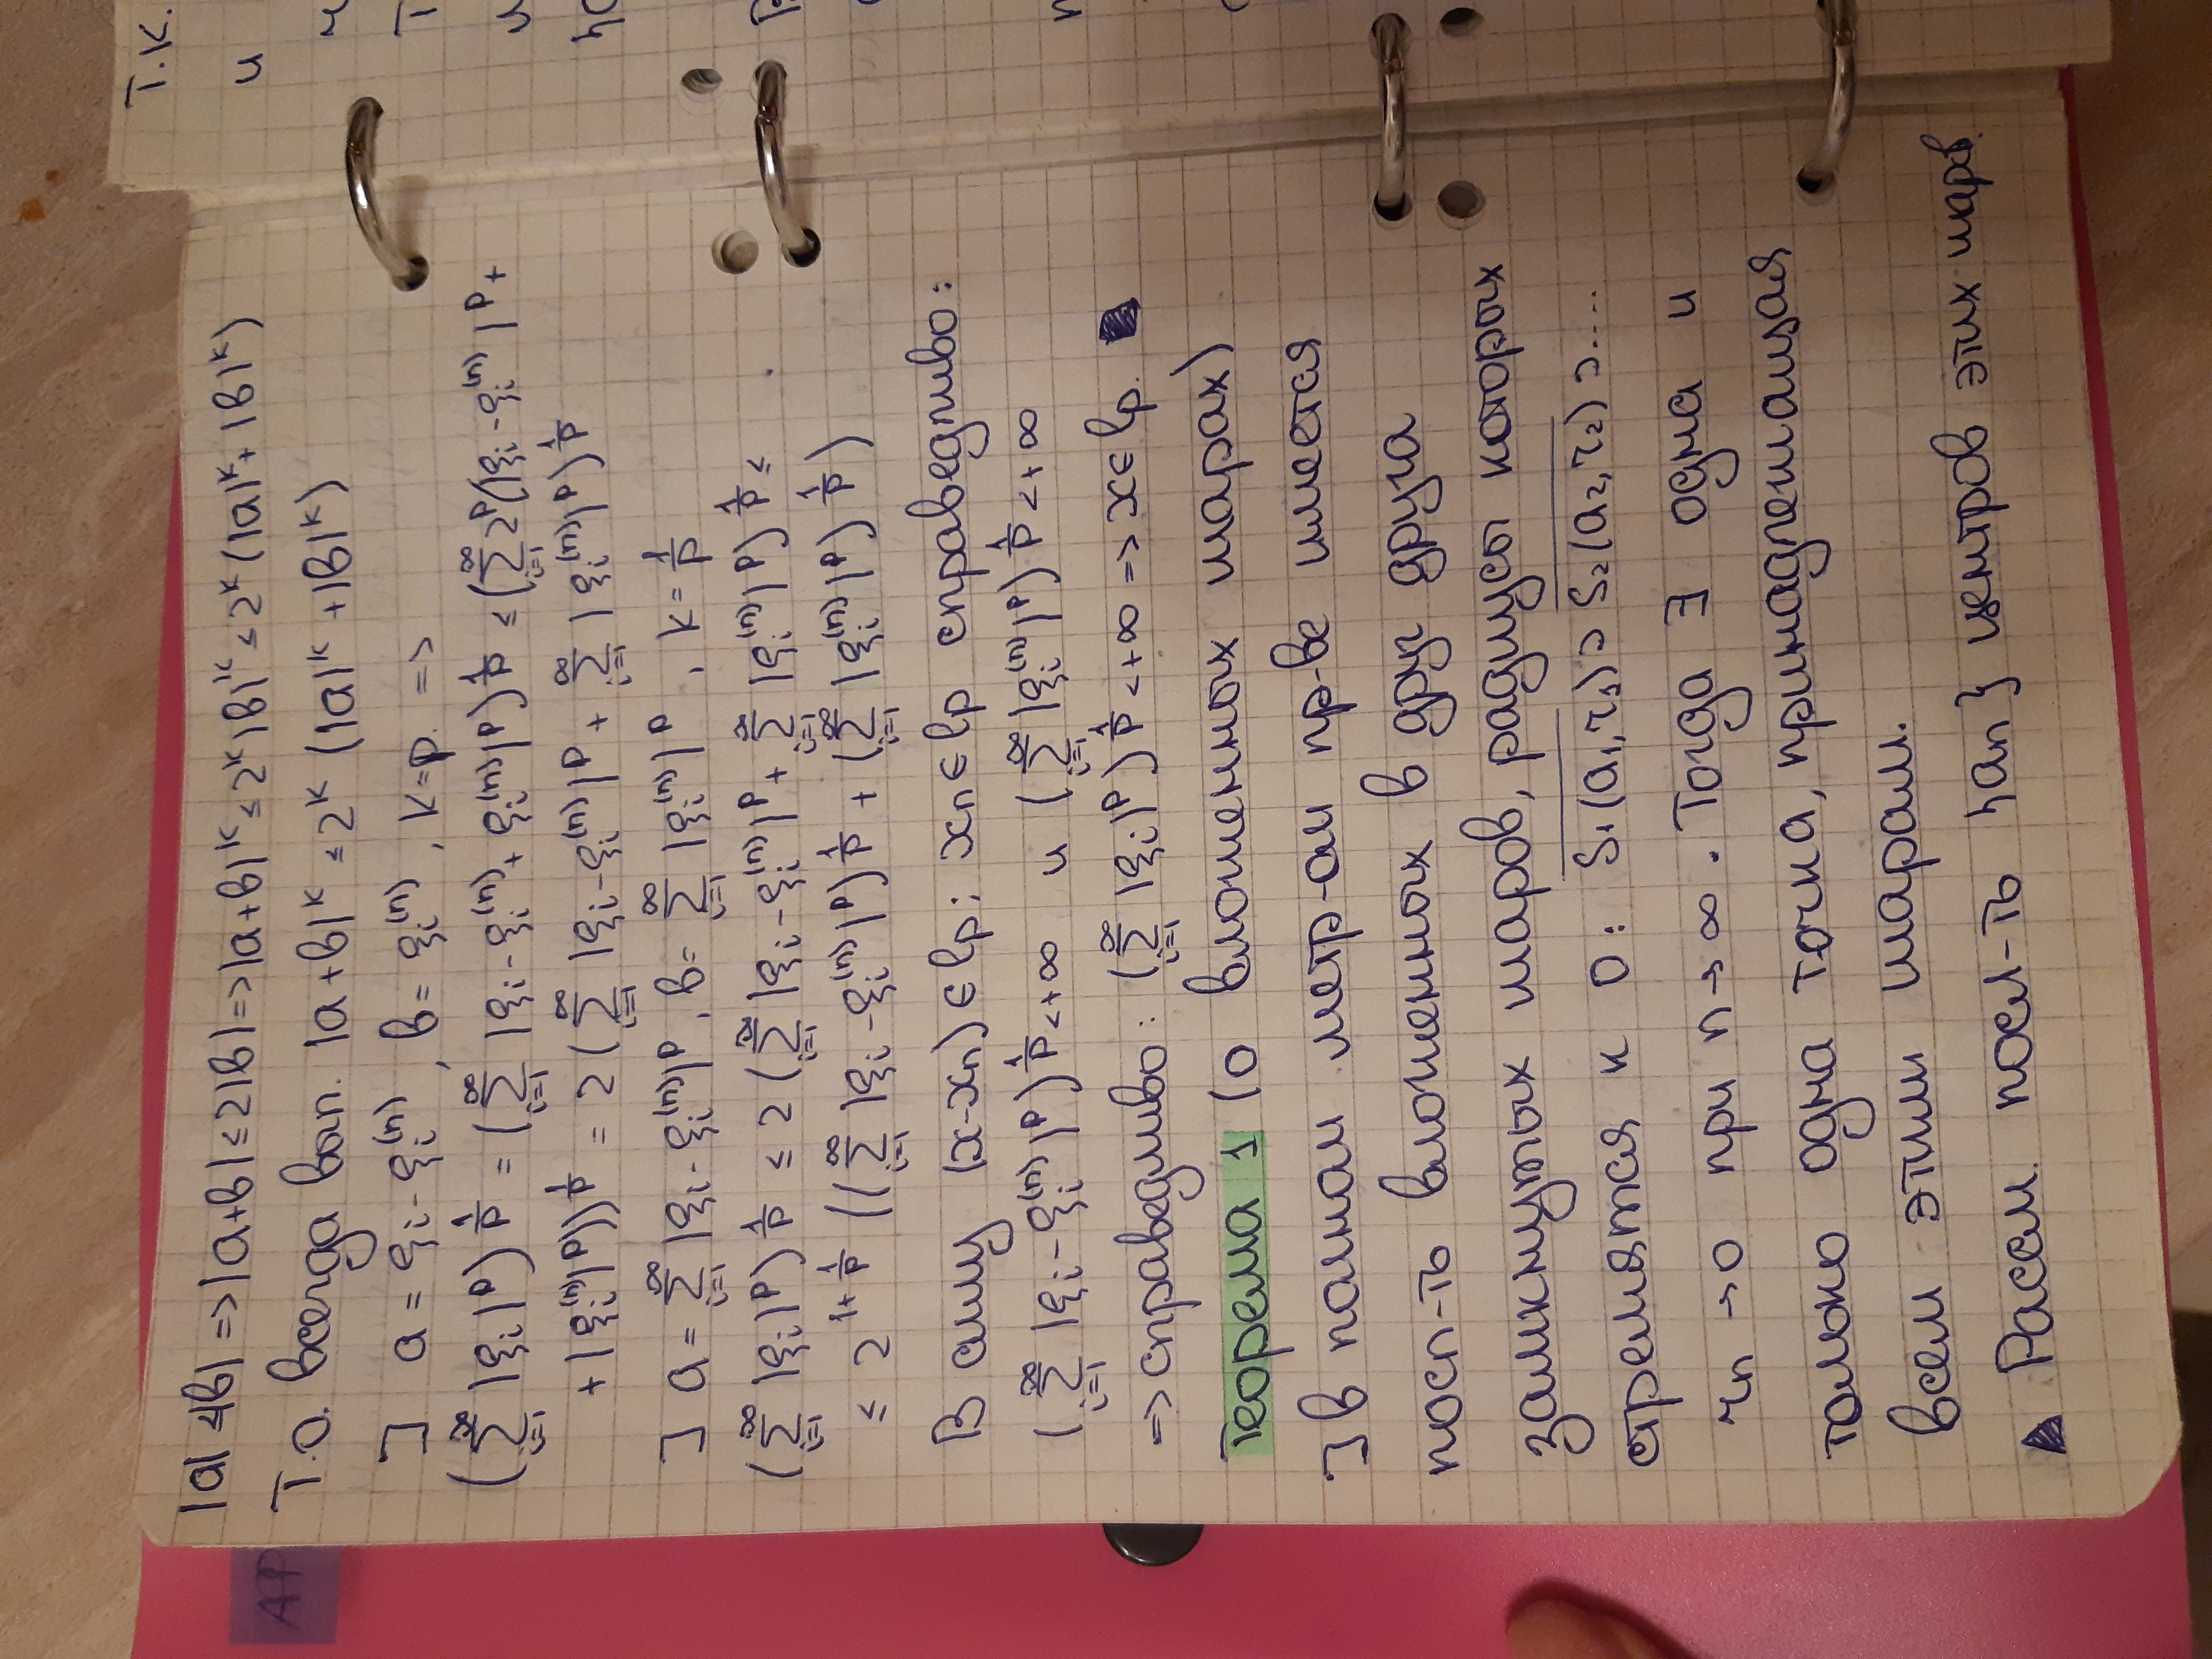 |a| ≤ |b| => |a+b| ≤ 2|b| => |a+b|ᵏ ≤ 2ᵏ|b|ᵏ ≤ 2ᵏ(|a|ᵏ + |b|ᵏ)
Т.о. всегда вып. |a+b|ᵏ ≤ 2ᵏ (|a|ᵏ + |b|ᵏ)
] a = ξᵢ - ξᵢ⁽ⁿ⁾, b = ξᵢ⁽ⁿ⁾, k=p. =>
(∑_{i=1}^∞ |ξᵢ|ᵖ)^{1/p} = (∑_{i=1}^∞ |ξᵢ - ξᵢ⁽ⁿ⁾ + ξᵢ⁽ⁿ⁾|ᵖ)^{1/p} ≤ (∑_{i=1}^∞ 2ᵖ(|ξᵢ - ξᵢ⁽ⁿ⁾|ᵖ +
+ |ξᵢ⁽ⁿ⁾|ᵖ))^{1/p} = 2 (∑_{i=1}^∞ |ξᵢ - ξᵢ⁽ⁿ⁾|ᵖ + ∑_{i=1}^∞ |ξᵢ⁽ⁿ⁾|ᵖ)^{1/p}
] a = ∑_{i=1}^∞ |ξᵢ - ξᵢ⁽ⁿ⁾|ᵖ, b = ∑_{i=1}^∞ |ξᵢ⁽ⁿ⁾|ᵖ, k = 1/p
(∑_{i=1}^∞ |ξᵢ|ᵖ)^{1/p} ≤ 2 (∑_{i=1}^∞ |ξᵢ - ξᵢ⁽ⁿ⁾|ᵖ + ∑_{i=1}^∞ |ξᵢ⁽ⁿ⁾|ᵖ)^{1/p} ≤
≤ 2^{1+1/p} ((∑_{i=1}^∞ |ξᵢ - ξᵢ⁽ⁿ⁾|ᵖ)^{1/p} + (∑_{i=1}^∞ |ξᵢ⁽ⁿ⁾|ᵖ)^{1/p})
В силу (x-xₙ) ∈ lp; xₙ ∈ lp справедливо:
(∑_{i=1}^∞ |ξᵢ - ξᵢ⁽ⁿ⁾|ᵖ)^{1/p} < +∞ и (∑_{i=1}^∞ |ξᵢ⁽ⁿ⁾|ᵖ)^{1/p} < +∞
=> справедливо: (∑_{i=1}^∞ |ξᵢ|ᵖ)^{1/p} < +∞ => x ∈ lp.
Теорема 1 (о вложенных шарах)
] в полном метр-ом пр-ве имеется
посл-ть вложенных в друг друга
замкнутых шаров, радиусы которых
стремятся к 0: S₁(a₁,r₁) ⊃ S₂(a₂,r₂) ⊃ ....
rₙ → 0 при n → ∞. Тогда ∃ одна и
только одна точка, принадлежащая
всем этим шарам.
▲ Рассм. посл-ть {aₙ} центров этих шаров.
Т.К.
и
АР